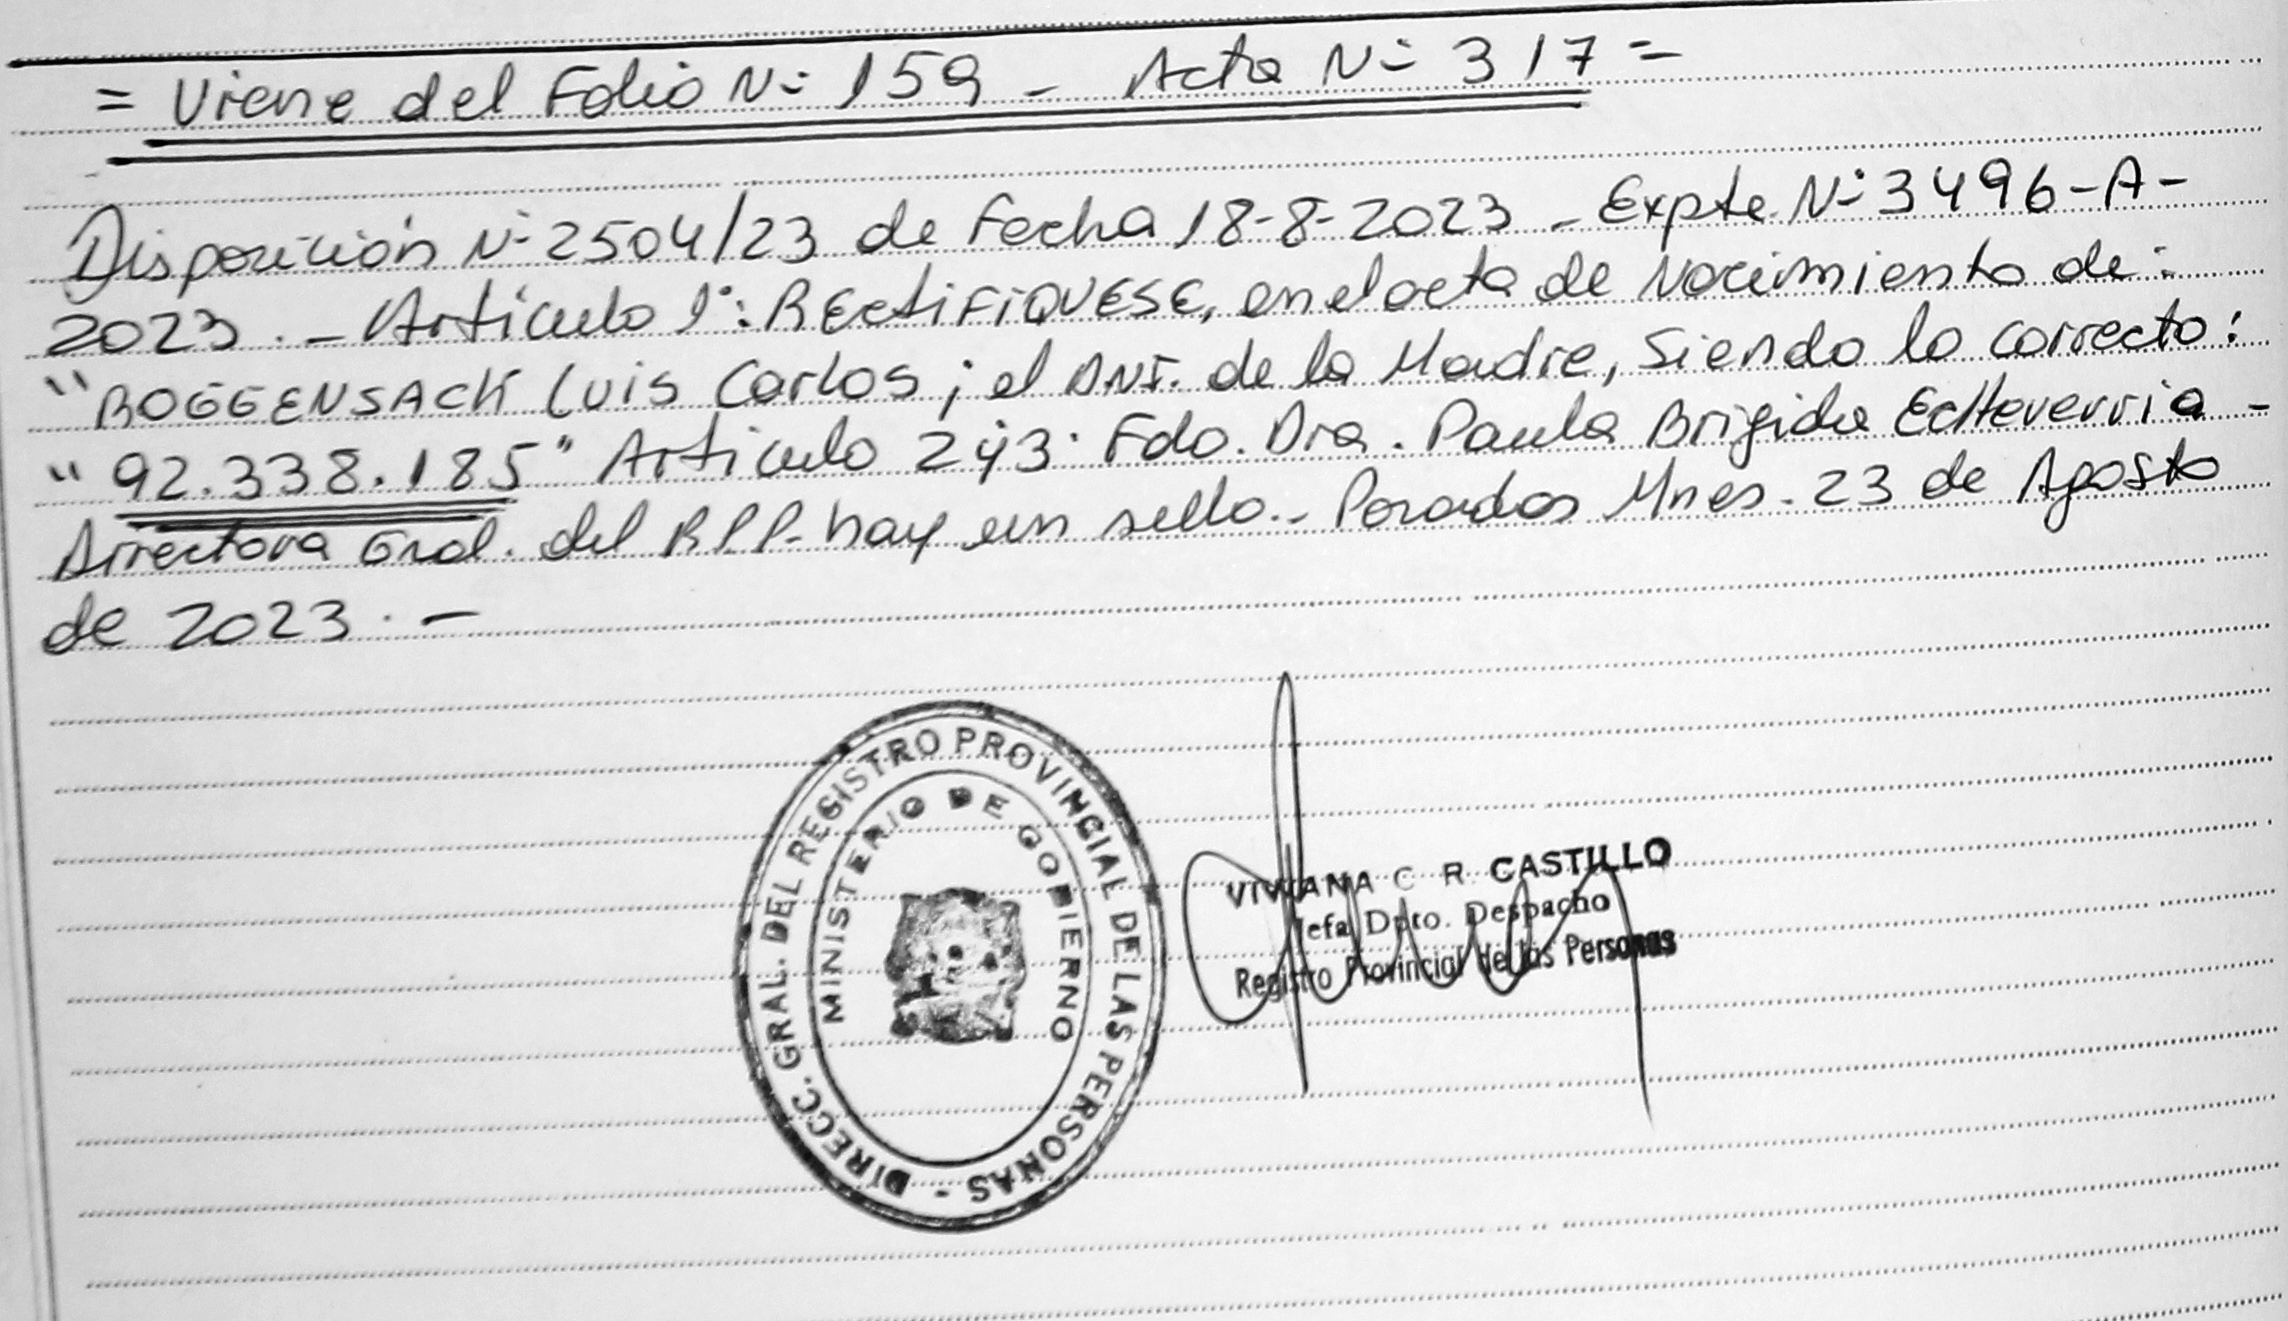 = Viene del Folio Nº 159 - Acta Nº 317 =
Disposición Nº 2504/23 de Fecha 18-8-2023 - Expte. Nº 3496-A-
2023. - Artículo 1º: RECtiFiQUESE, en el acta de Nacimiento de:
"ROGGENSACK Luis Carlos; el DNI. de la Madre, Siendo lo correcto:
"92.338.185" Articulo 2y3. Fdo. Dra. Paula Brigida Echeverria -
Directora Gral. del RPP- hay un sello.- Posadas Mnes. 23 de Agosto
de 2023. -
DIRECC. GRAL. DEL REGISTRO PROVINCIAL DE LAS PERSONAS -
MINISTERIO DE GOBIERNO
VIVIANA C R CASTILLO
Jefa Dpto. Despacho
Registro Provincial de las Personas